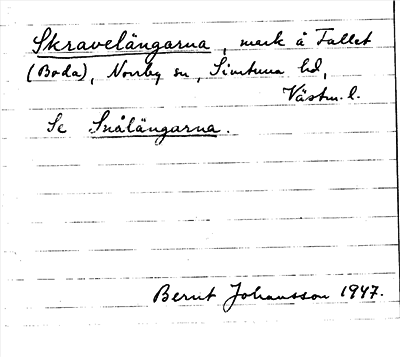 Skravelängarna, mark å Fallet
(Boda), Norrby sn, Simtuna hd,
Västm. l.
Se Snålängarna.
Bernt Johansson 1947.